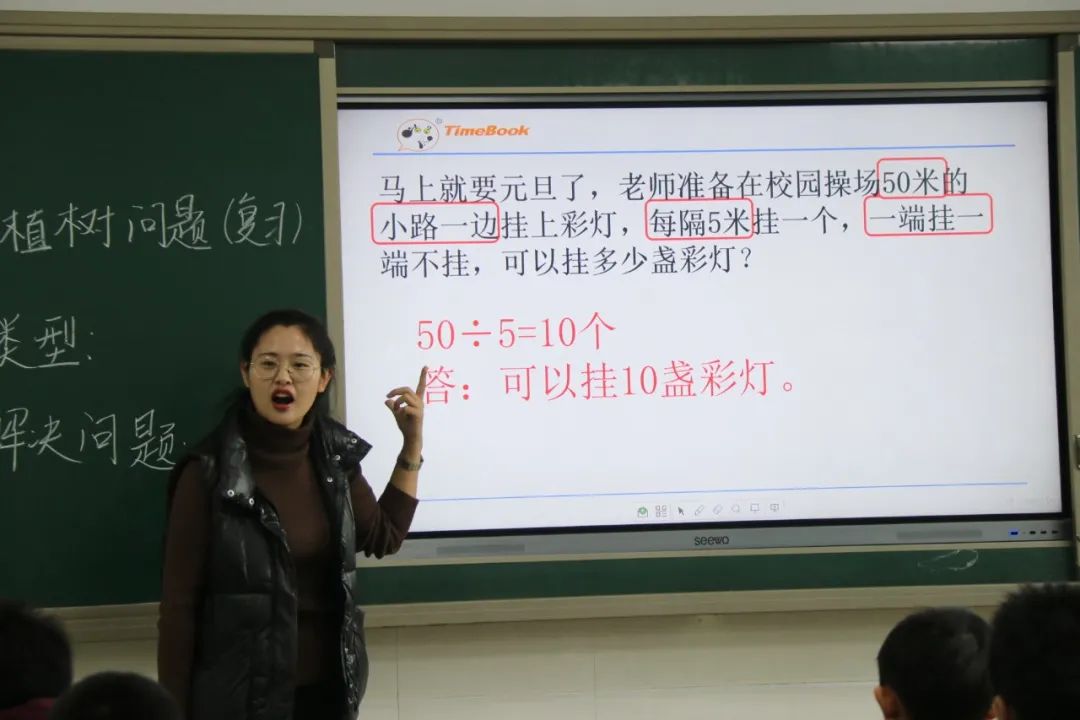 植树问题(复习)
类型:
解决问题:
TimeBook
马上就要元旦了，老师准备在校园操场50米的
小路一边挂上彩灯，每隔5米挂一个，一端挂一
端不挂，可以挂多少盏彩灯？
50÷5=10个
答：可以挂10盏彩灯。
seewo